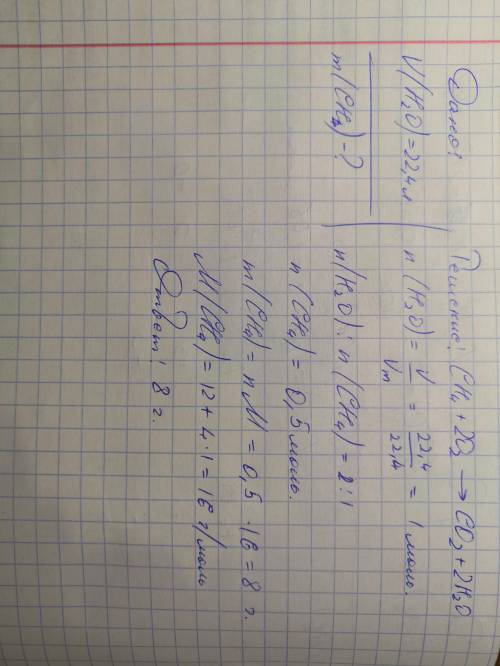 Дано:
V(H₂O)=22,4 л
m(CH₄)-?
Решение: CH₄ + 2O₂ → CO₂ + 2H₂O
n(H₂O) = V/Vm = 22,4/22,4 = 1 моль.
n(H₂O) : n(CH₄) = 2:1
n(CH₄) = 0,5 моль.
m(CH₄) = nM = 0,5 · 16 = 8 г.
M(CH₄) = 12 + 4·1 = 16 г/моль
Ответ: 8 г.